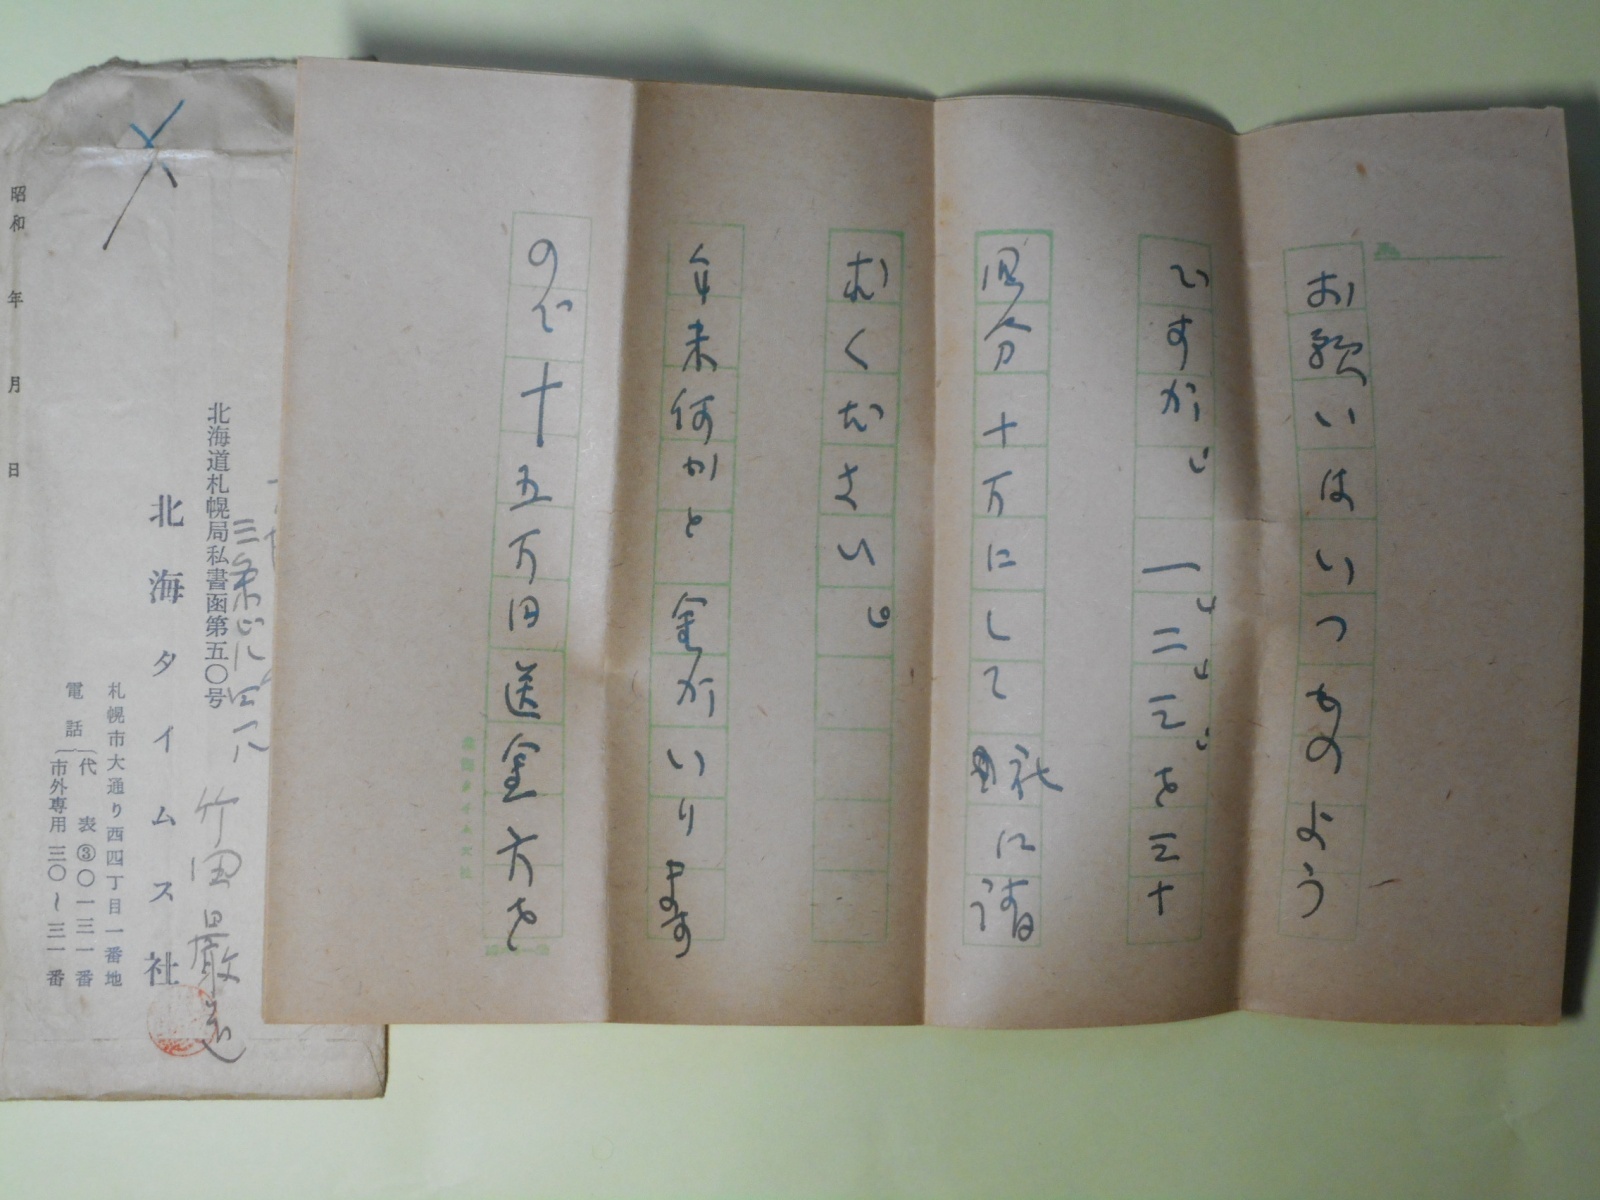 お願いはいつものよう
ですが、一、二、三を三十
四分十万にして 社に請
おください。
年末何かと金がいります
ので十五万円送金方を
北海タイムス社
昭和 年 月 日
北海道札幌局私書函第五〇号
竹田巌
北海タイムス社
札幌市大通り西四丁目一番地
電話
代表③〇一三一番
市外専用 三〇〜三一番